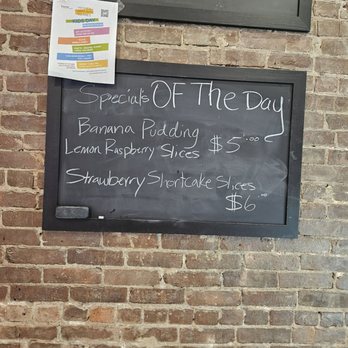 KIDS DAY
Specials OF The Day
Banana Pudding
Lemon Raspberry Slices $5.00
Strawberry Shortcake Slices
$6